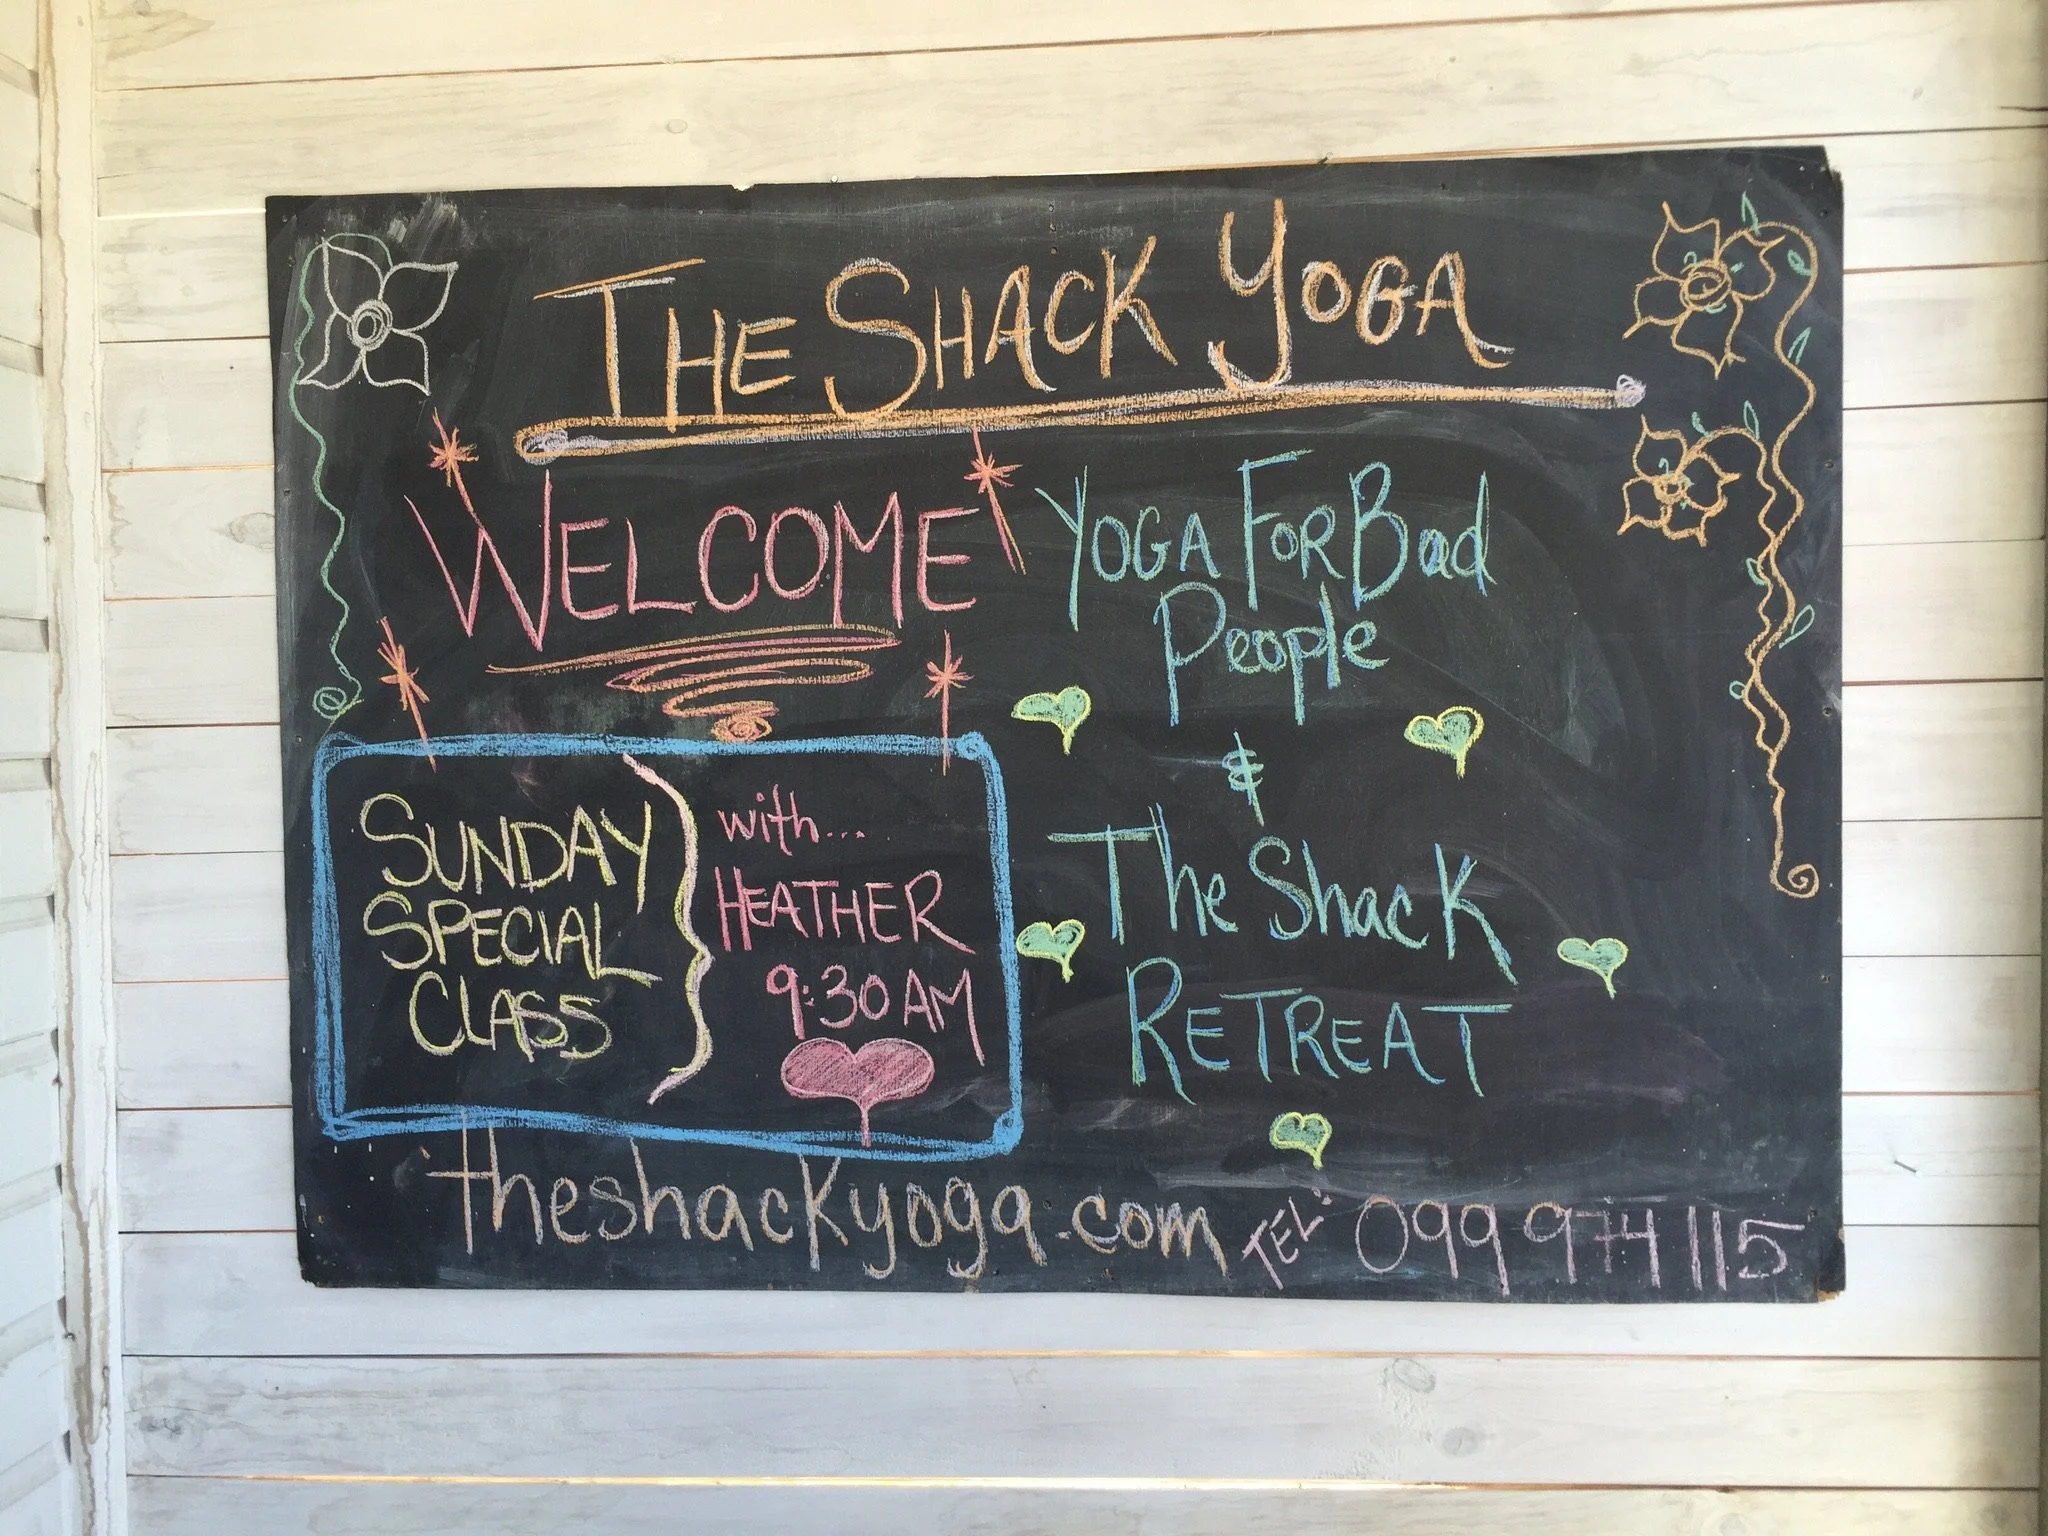 THE SHACK YOGA
WELCOME
YOGA FOR Bad
People
&
The Shack
RETREAT
SUNDAY
SPECIAL
CLASS
with...
HEATHER
9:30 AM
theshackyoga.com
TEL: 099 974 115